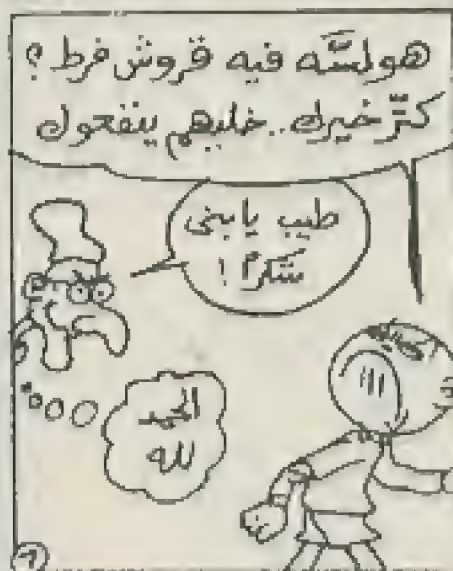 هو لسَّه فيه قروش فرط ؟
كتَّر خيرك .. خليهم ينفعوك
طيب يا بنى
شكراً !
الحمد
لله